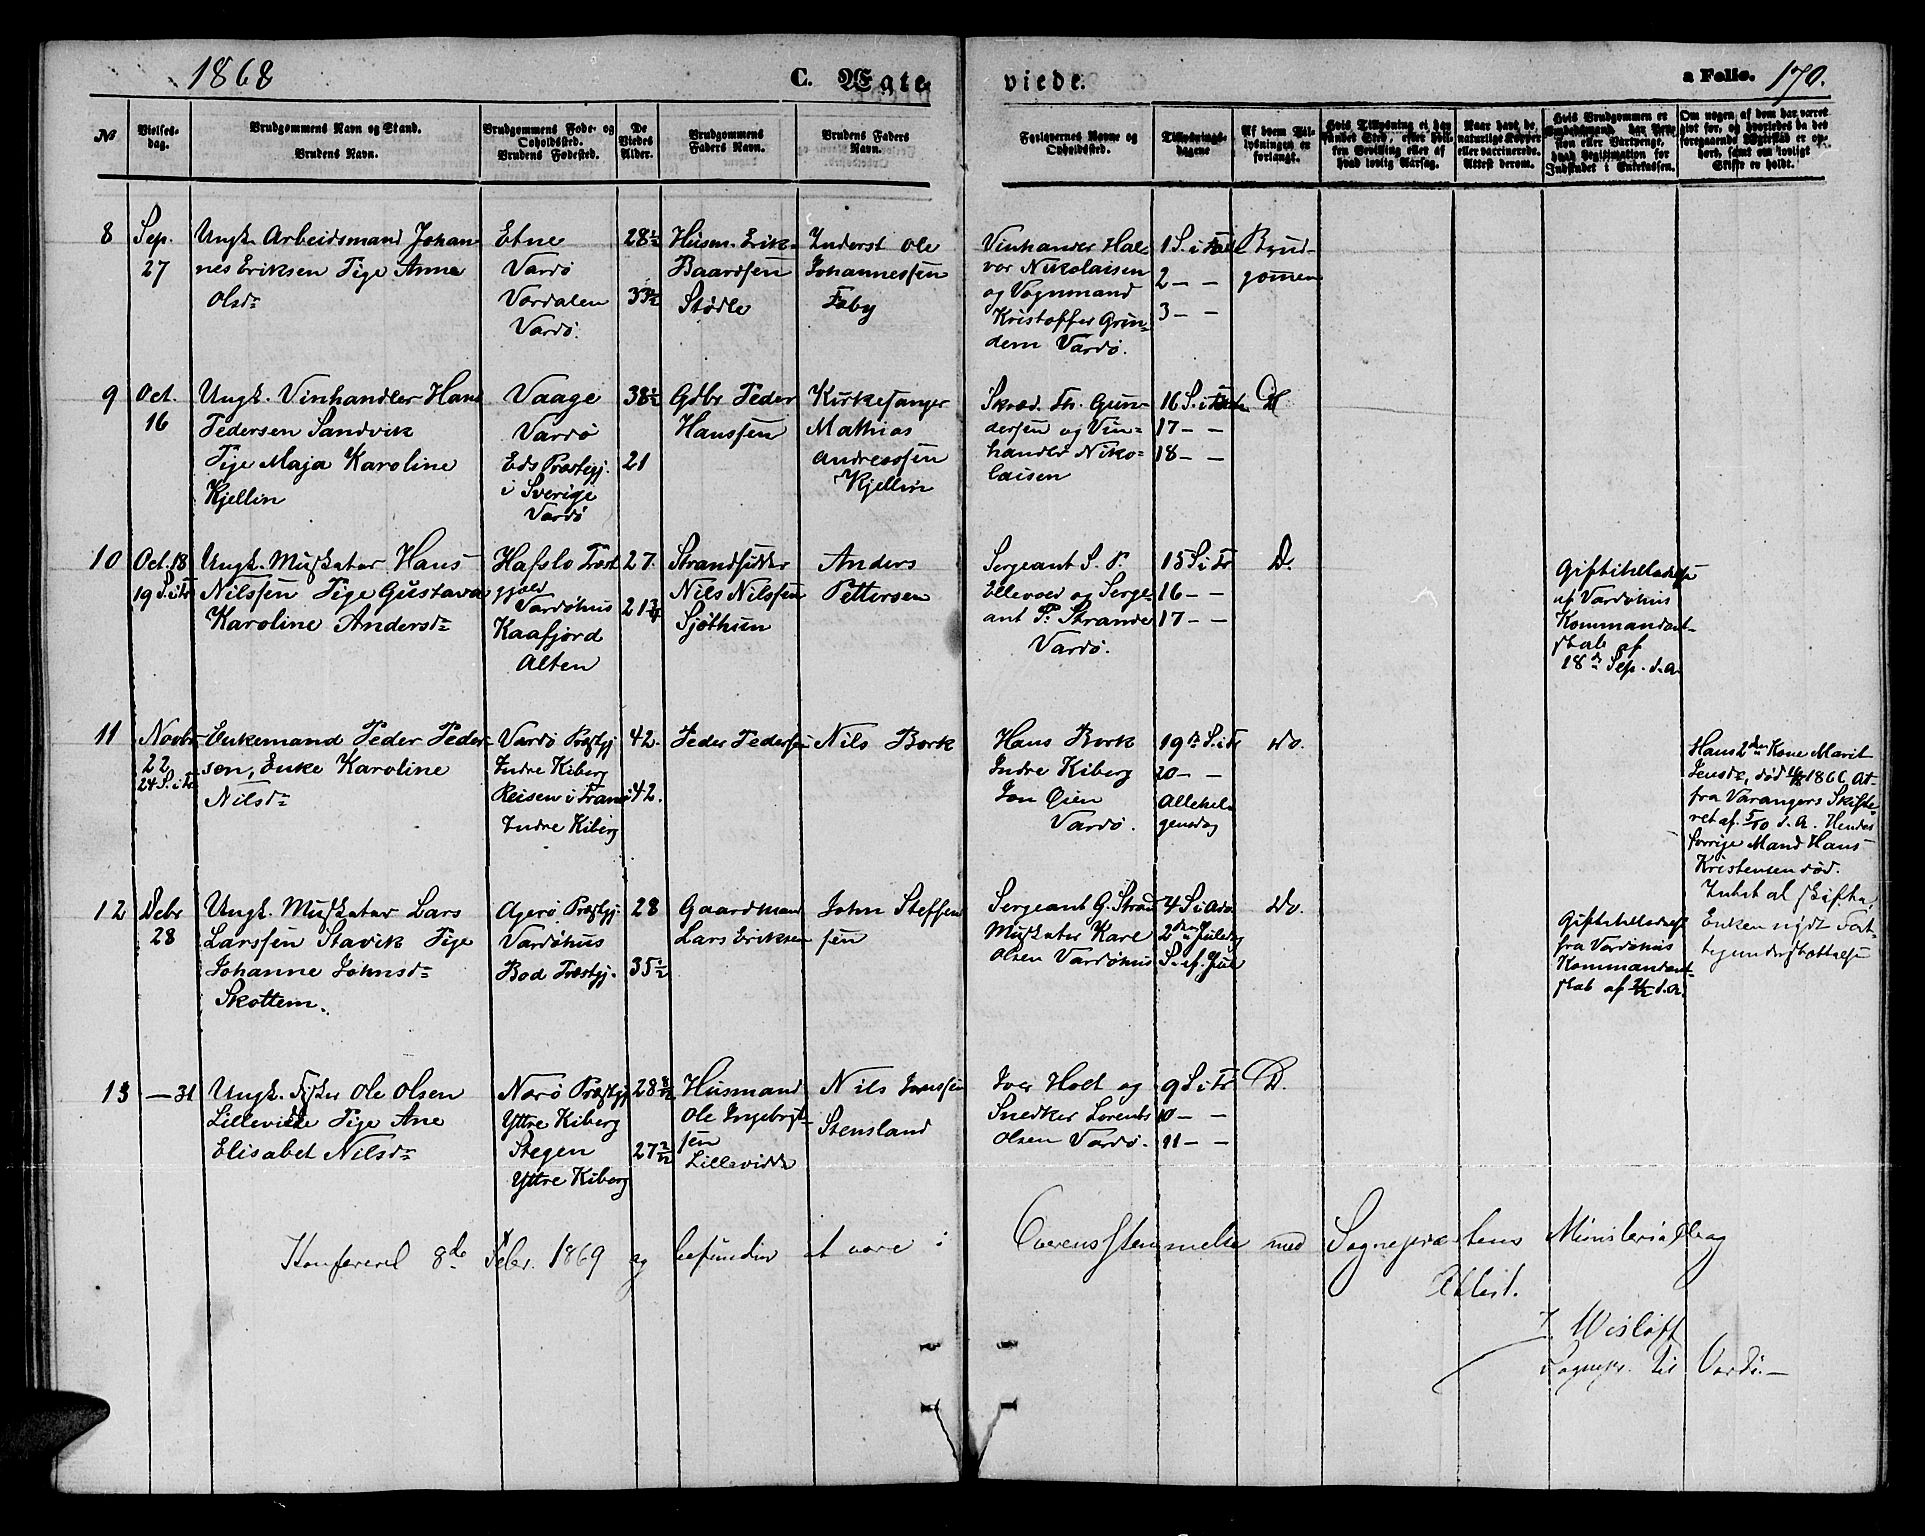 1868
C. Ægte
viede.
a Folio. 170.
No
Vielses-
dag.
Brudgommens Navn og Stand.
Brudens Navn.
Brudgommens Føde- og
Opholdssted.
Brudens Fødested.
De
Viedes
Alder.
Brudgommens
Faders Navn.
Brudens Faders
Navn.
Forlovernes Navne og
Opholdssted.
Tillysnings-
dagene
Af hvem Til-
lysningen er
forlangt.
Hvis Tillysning ei har
fundet Sted, efter hvil-
ken Bevilling eller af
hvad lovlig Aarsag.
Naar havt de
naturlige Kopper
eller vaccinerede.
Attest derom.
Hvis Brudgommen er
Embedsmand, har Pen-
sion eller Vartpenge,
hvad Legitimation for
Indskudet i Enkekassen.
Om nogen af dem har været
gift før, og hvorledes da det
foregaaende Ægteskab er op-
hørt, samt om lovligt
Skifte er holdt.
8
Sep.
27
Ungk. Arbeidsmand Johan
nes Eriksen Pige Anne
Olsdr
Etne
Vardø
Værdalen
Vardø.
28½
33½
Husm. Erik
Baardsen
Stødle
Inderst Ole
Johannessen
Faby
Vinhandler Hal-
vor Nikolaisen
og Vognmand
Kristoffer Grin-
dem Vardø.
1 S. i Faste
2 – –
3 – –
Brud-
gomen
9
Oct.
16
Ungk. Vinhandler Hans
Pedersen Sandvik
Pige Maja Karoline
Kjellin
Vaage
Vardø
Eds Præstegj.
i Sverige
Vardø
38½
21
Gdbr Peder
Hanssen
Kirkesanger
Mathias
Andreassen
Kjellin
Skræd. Th. Gun-
dersen og Vin-
handler Niko-
laisen
16 S. i Tr
17 – –
18 – –
D
10
Oct. 18
19 S. i Tr
Ungk. Musketer Hans
Nilssen Pige Gustava
Karoline Andersdr
Hafslo Præst
gjæld
Vardøhus
Kaafjord
Alten
27.
21¾
Strandsidder
Nils Nilssen
Sjøthun
Anders
Pettersen
Sergeant S. P.
Ellevoed og Serge-
ant P. Strande
Vardø.
15 S i Tr
16 – –
17 – –
D.
Giftetilladelse
af Vardøhus
Kommandant-
skab af
18de Sep. d.A.
11
Novbr
22
24 S. i Tr
Enkemand Peder Peder-
sen, Enke Karoline
Nilsdr
Vardø Præstgj
Indre Kiberg
Reisen i Tromsø
Indre Kiberg
42.
42.
Peder Pedersen
Nils Bork
Hans Bork
Indre Kiberg
Jon Øien
Vardø.
19de S. i Tr
20 – –
Allehel-
gensdag
Do.
Hans 2den Kone Marit
Jensdr, død 1866 At
fra Varangers Skifte
ret af d. A. Hendes
forrige Mand Hans
Kristensen død.
Intet at skifte,
Enken nydt Fat-
tigunderstøttelse
12
Debr
28
Ungk. Musketer Lars
Larssen Stavik Pige
Johanne Johnsdr
Skottem.
Agerø Præstgj.
Vardøhus
Bod Præstgj.
28
35½
Gaardmand
Lars Eriksen
John Steffen
sen
Sergeant G. Strand
Musketer Karl
Olsen Vardøhus
4 S i Adv.
2den Juledag
S. ef. Jul
Do.
Giftetilladelse
fra Vardøhus
Kommandant-
skab af d.A.
13
– 31
Ungk. Fisker Ole Olsen
Lillevidde Pige Ane
Elisabet Nilsdr
Nærø Præstgj
Yttre Kiberg
Stegen
Yttre Kiberg
28 8/12
27 2/12
Husmand
Ole Ingebrigt-
sen
Lillevidde
Nils Jonssen
Stensland
Iver Holt og
Snedker Lorents
Olsen Vardø.
9 S i Tr
10 – –
11 – –
D.
Konfereret 8de Febr. 1869 og befunden at være i Overensstemmelse med Sognepræstens Ministerialbog
Attest.
J. Wisløff
Sognepr. til Vardø. –